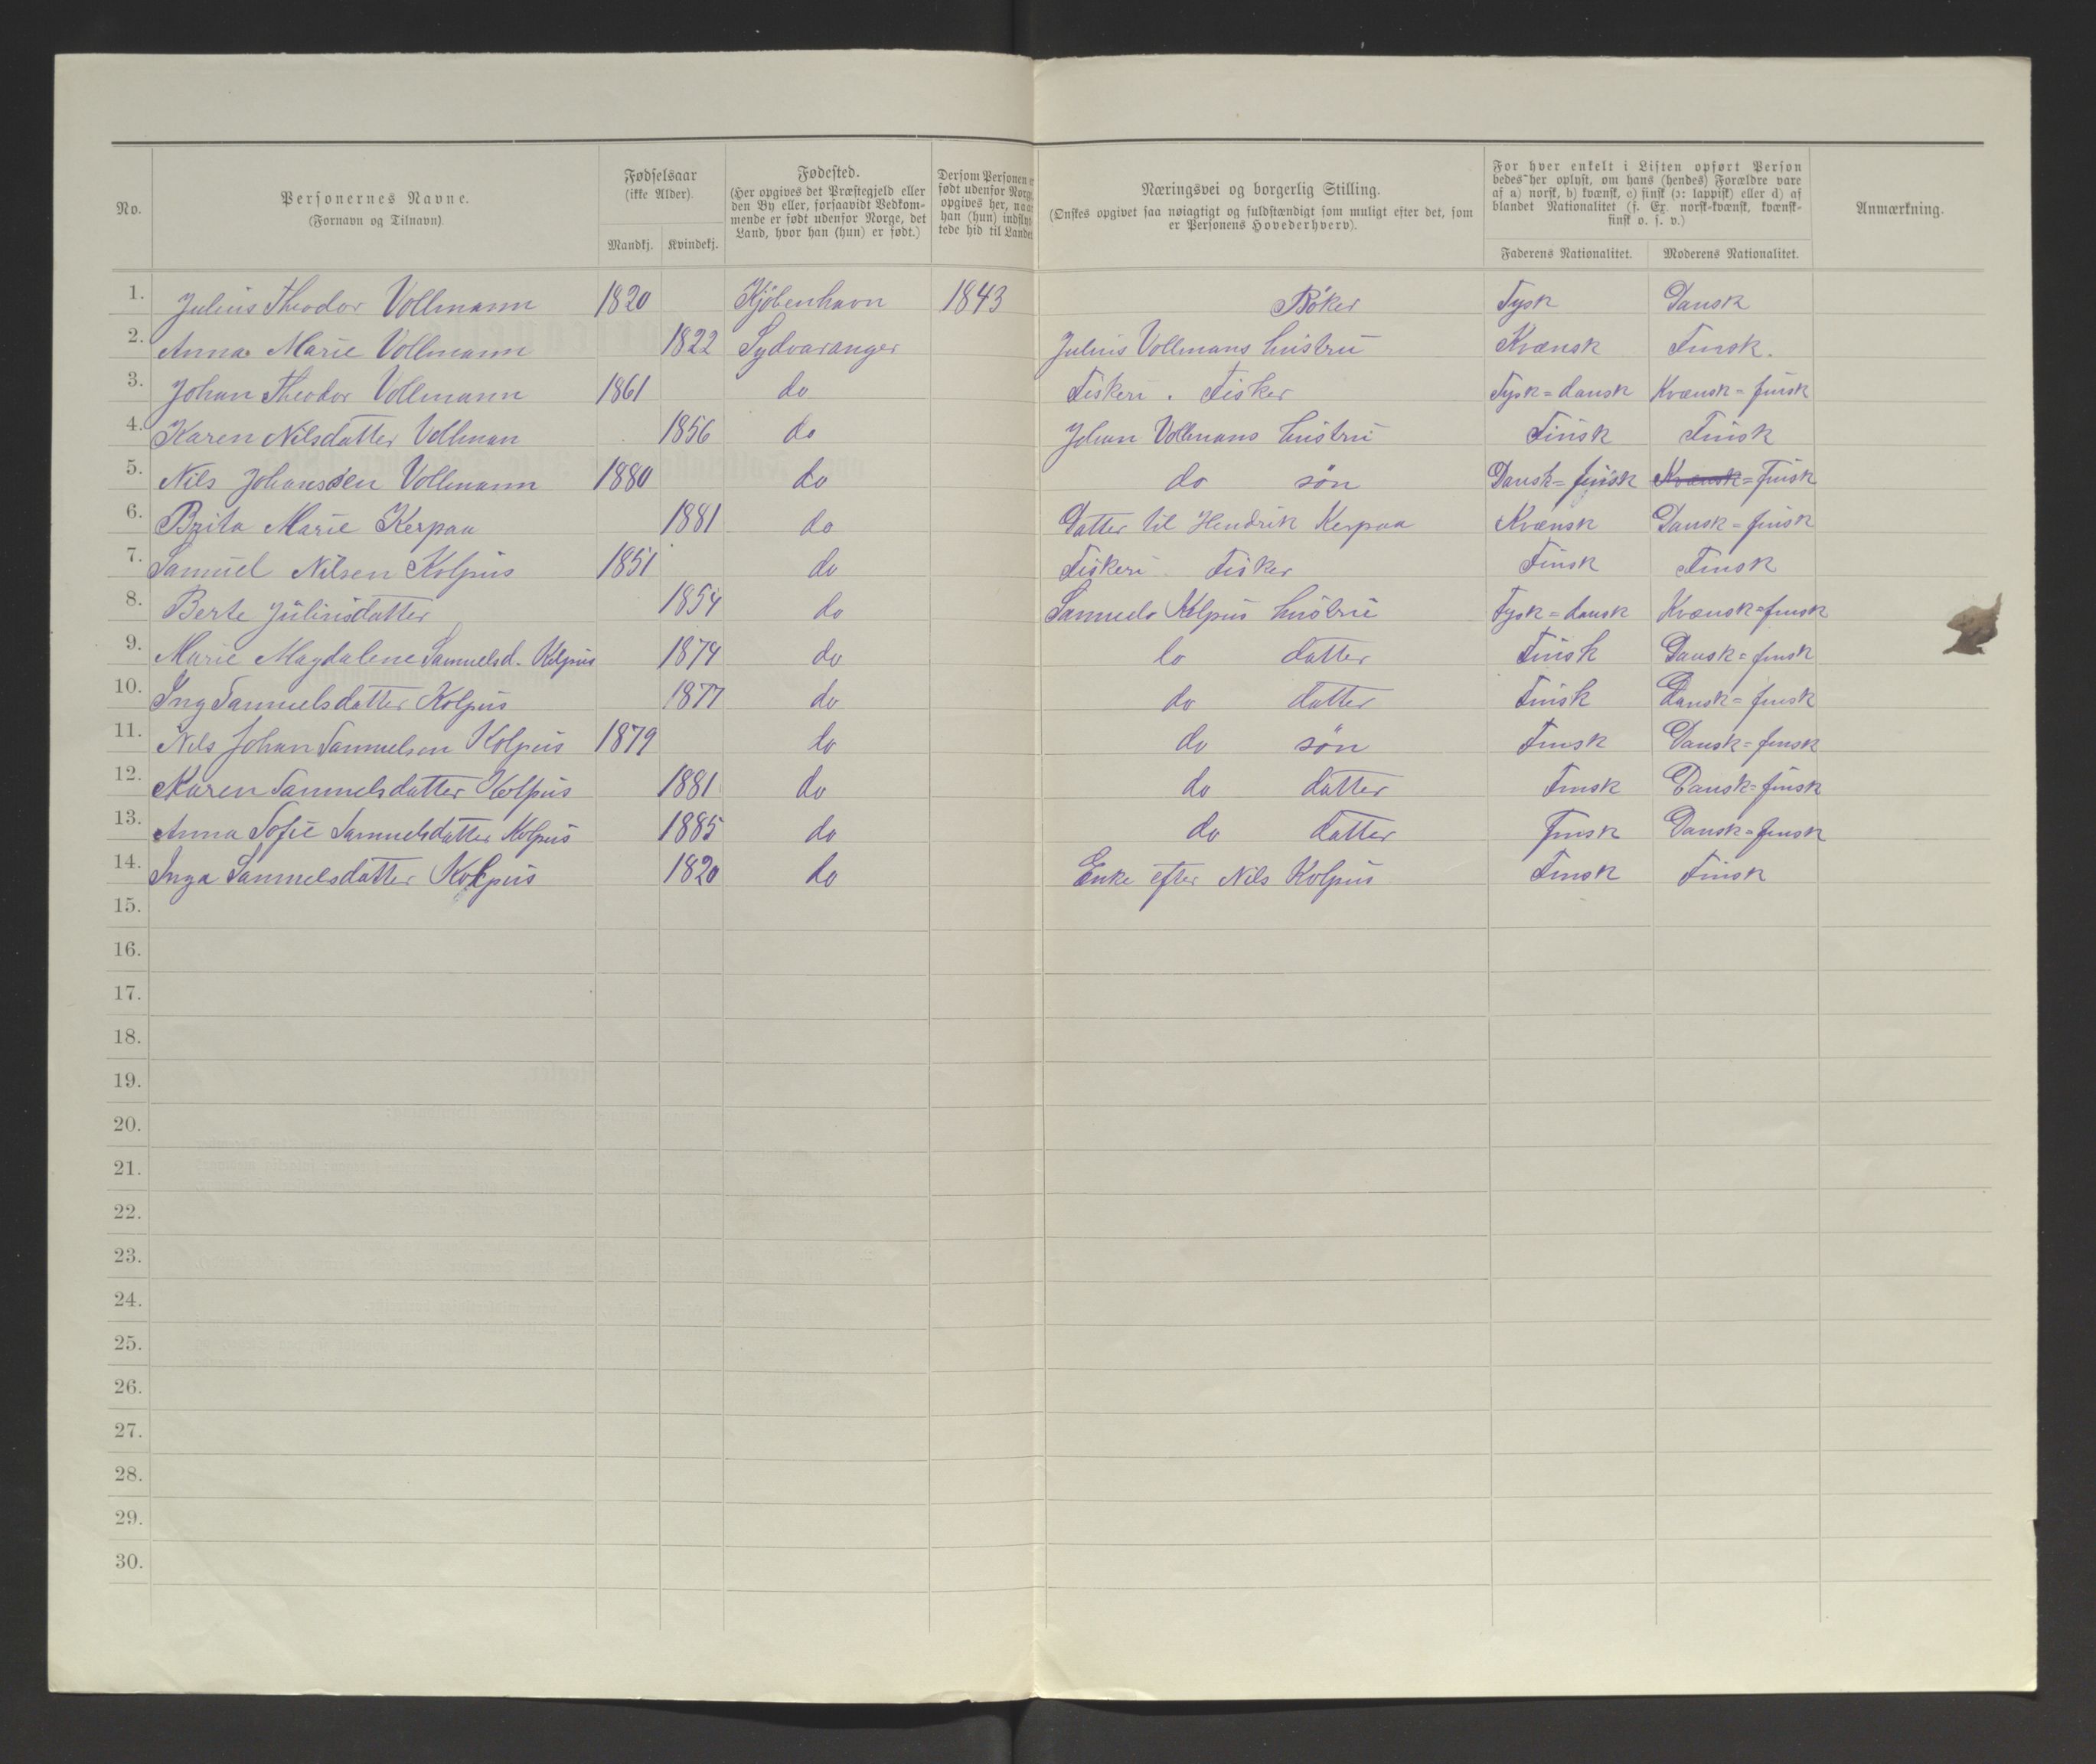 No.
Personernes Navne.
(Fornavn og Tilnavn)
Fødselsaar
(ikke Alder).
Mandkj. Kvindekj.
Fødested.
(Her opgives det Præstegjeld eller
den By eller, forsaavidt Vedkom-
mende er født udenfor Norge, det
Land, hvor han (hun) er født.)
Dersom Personen er
født udenfor Norge,
opgives her, naar
han (hun) indflyt-
tede hid til Landet
Næringsvei og borgerlig Stilling.
(Ønskes opgivet saa nøiagtigt og fuldstændigt som muligt efter det, som
er Personens Hovederhverv).
For hver enkelt i Listen opført Person
bedes her oplyst, om hans (hendes) Forældre vare
af a) norsk, b) kvænsk, c) finsk (ɔ: lappisk) eller d) af
blandet Nationalitet (f. Ex. norsk-kvænsk, kvænsk-
finsk o. s. v.)
Faderens Nationalitet. Moderens Nationalitet.
Anmærkning.
1. Julius Theodor Vollmann 1820 Kjøbenhavn 1843 Bøker Tysk Dansk
2. Anna Marie Vollmann 1822 Sydvaranger Julius Vollmans hustru Kvænsk Finsk.
3. Johan Theodor Vollmann 1861 do Fiskeri . Fisker Tysk=dansk Kvænsk=finsk
4. Karen Nilsdatter Vollman 1856 do Johan Vollmans hustru Finsk Finsk
5. Nils Johansen Vollmann 1880 do do søn Dansk=finsk Kvænsk=Finsk
6. Brita Marie Kerpaa 1881 do Datter til Hendrik Kerpaa Kvænsk Dansk=finsk
7. Samuel Nilsen Kolpus 1851 do Fiskeri Fisker Finsk Finsk
8. Berte Juliusdatter 1854 do Samuels Kolpus hustru Tysk=dansk Kvænsk=finsk
9. Marie Magdalene Samuelsd. Kolpus 1874 do do datter Finsk Dansk=finsk
10. Ing Samuelsdatter Kolpus 1877 do do datter Finsk Dansk=finsk
11. Nils Johan Samuelsen Kolpus 1879 do do søn Finsk Dansk=finsk
12. Karen Samuelsdatter Kolpus 1881 do do datter Finsk Dansk=finsk
13. Anna Sofie Samuelsdatter Kolpus 1885 do do datter Finsk Dansk=finsk
14. Inga Samuelsdatter Kolpus 1820 do Enke efter Nils Kolpus Finsk Finsk
15.
16.
17.
18.
19.
20.
21.
22.
23.
24.
25.
26.
27.
28.
29.
30.